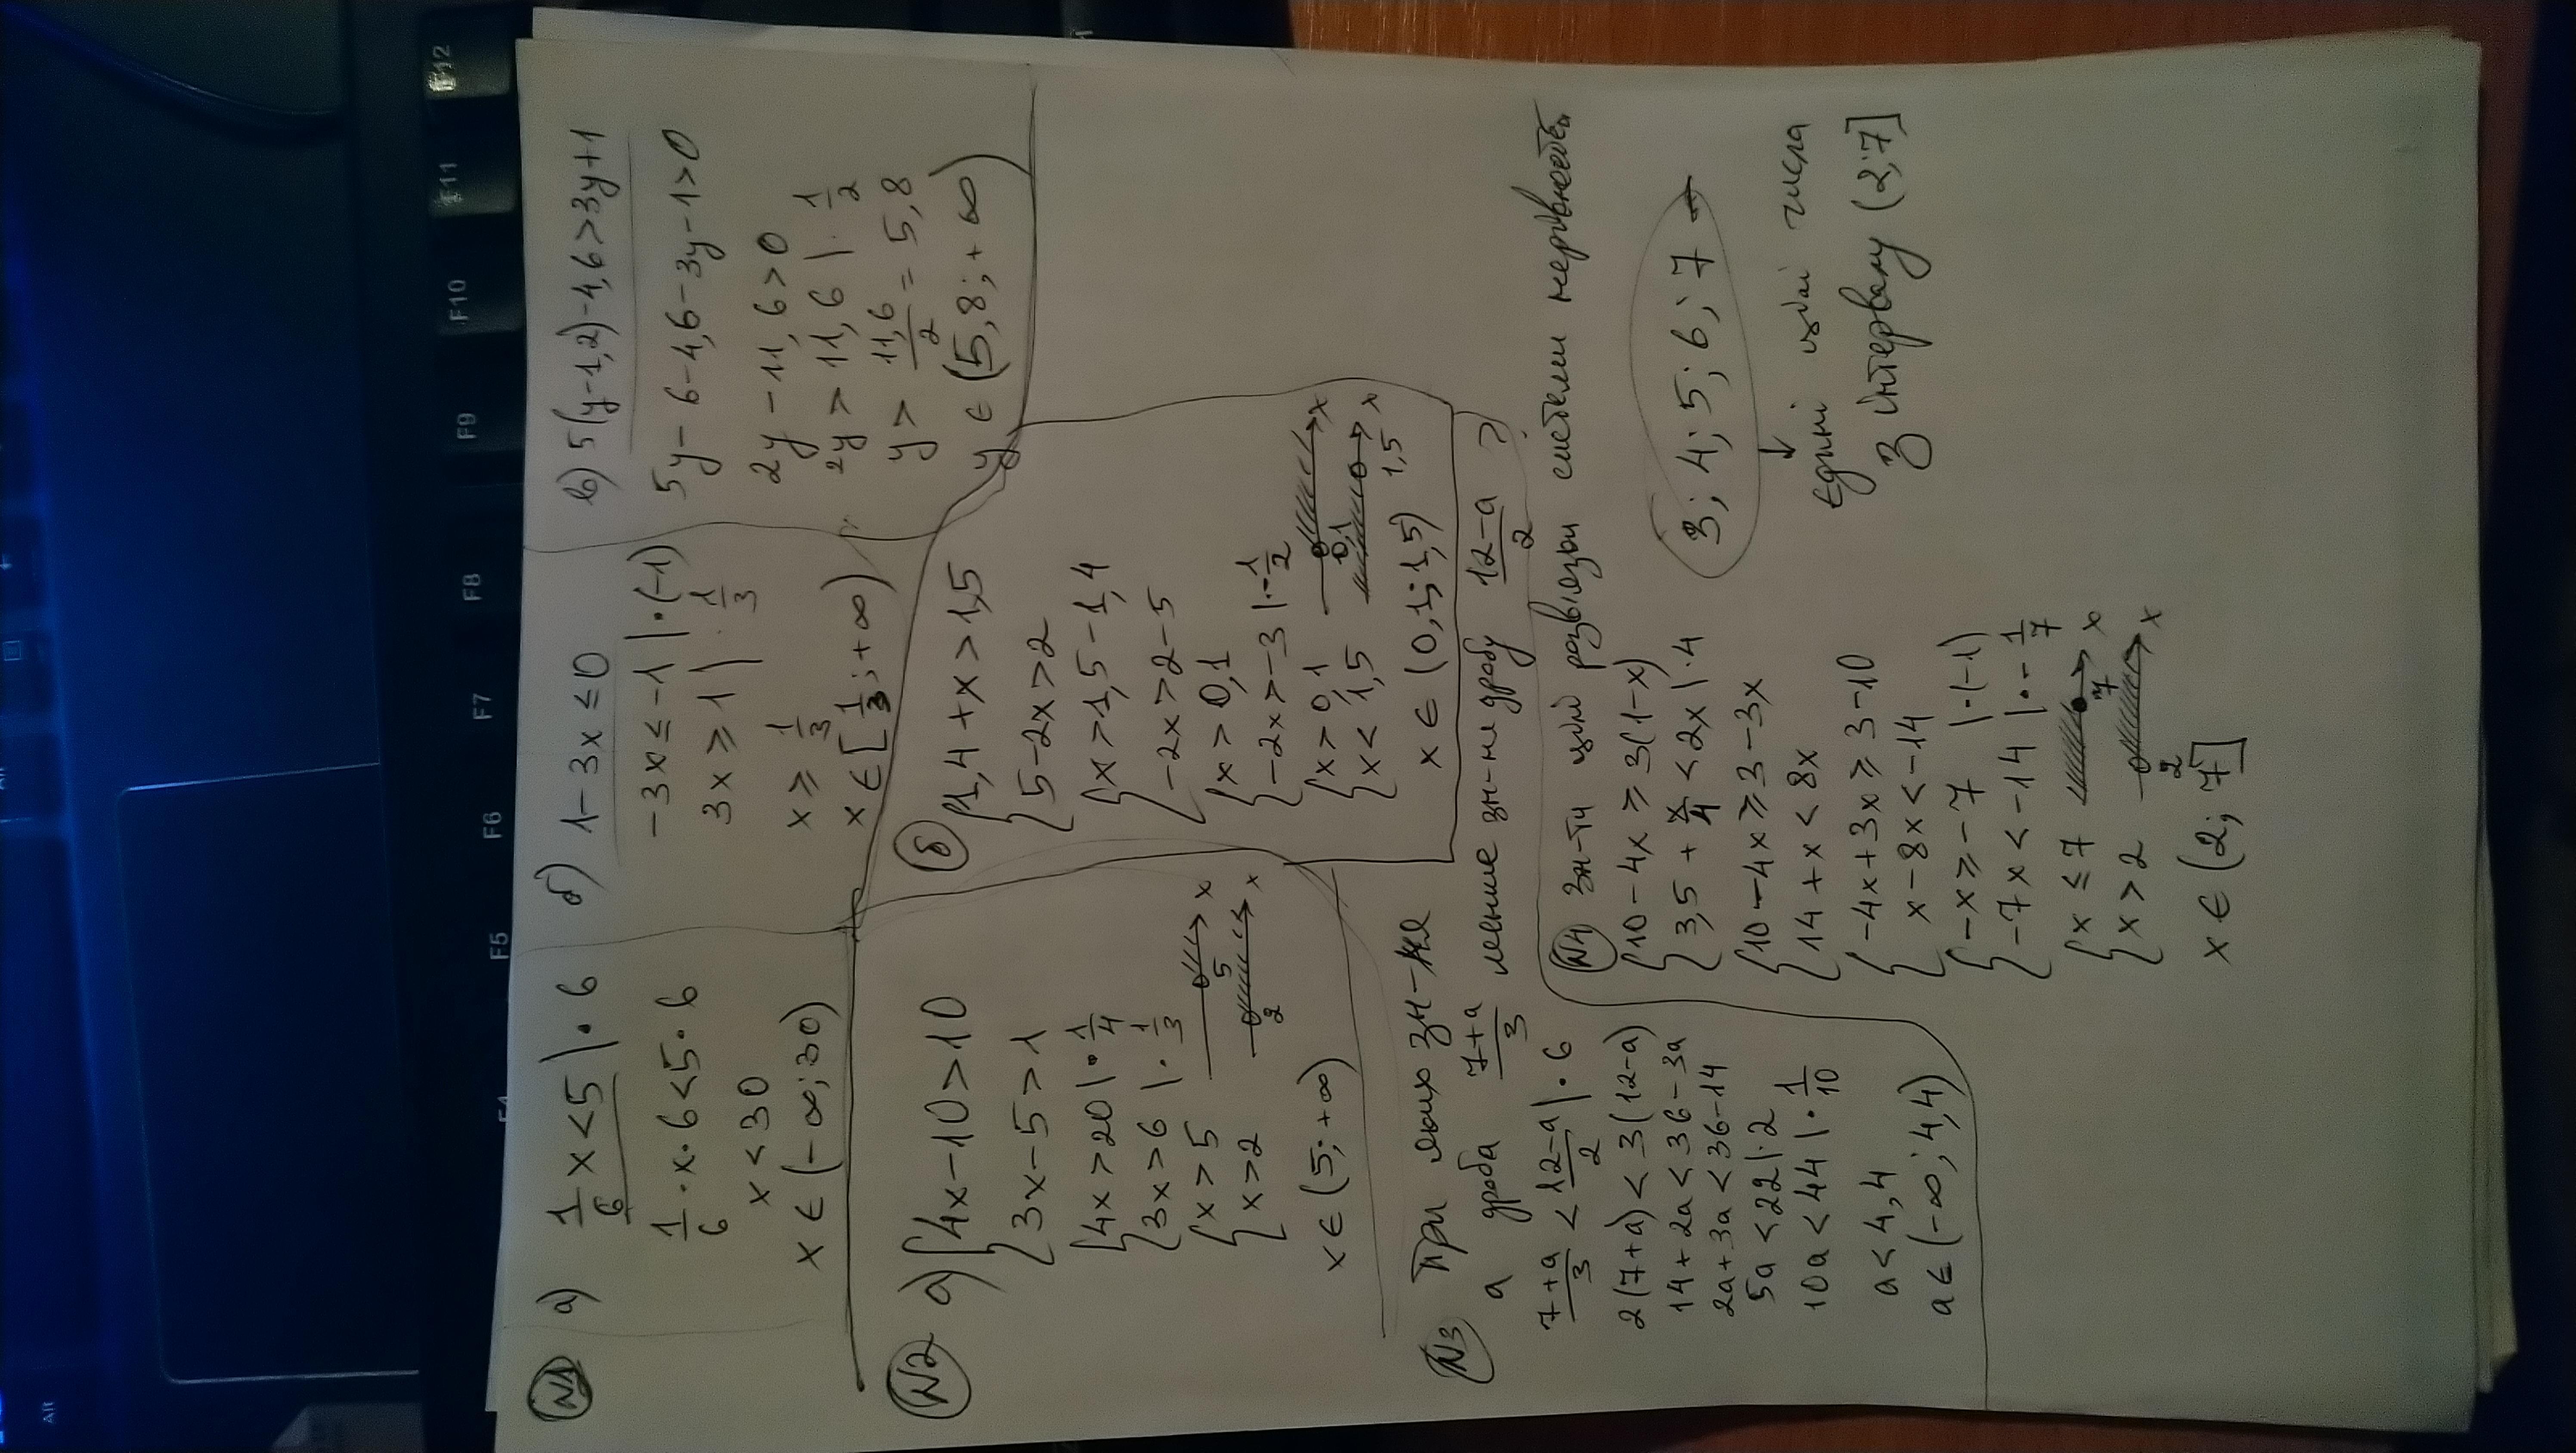 N1 а) 1/6 x < 5 | · 6
1/6 · x · 6 < 5 · 6
x < 30
x ∈ (-∞; 30)
б) 1 - 3x ≤ 0
-3x ≤ -1 | · (-1)
3x ≥ 1 | · 1/3
x ≥ 1/3
x ∈ [1/3; +∞)
в) 5(y-1,2)-4,6 > 3y+1
5y - 6 - 4,6 - 3y - 1 > 0
2y - 11,6 > 0
2y > 11,6 | · 1/2
y > 11,6/2 = 5,8
y ∈ (5,8; +∞)
N2 а) { 4x - 10 > 10
{ 3x - 5 > 1
{ 4x > 20 | · 1/4
{ 3x > 6 | · 1/3
{ x > 5
{ x > 2
5 x
2 x
x ∈ (5; +∞)
б { 1,4 + x > 1,5
{ 5 - 2x > 2
{ x > 1,5 - 1,4
{ -2x > 2 - 5
{ x > 0,1
{ -2x > -3 | · -1/2
{ x > 0,1
{ x < 1,5
0,1 x
1,5 x
x ∈ (0,1; 1,5)
N3 При яких зн-ня
а дроба 7+a/3 менше зн-ня дробу 12-a/2 ?
7+a/3 < 12-a/2 | · 6
2(7+a) < 3(12-a)
14 + 2a < 36 - 3a
2a + 3a < 36 - 14
5a < 22 | · 2
10a < 44 | · 1/10
a < 4,4
a ∈ (-∞; 4,4)
N4 Зн-ти цілі розв'язки системи нерівностей
{ 10 - 4x ≥ 3(1-x)
{ 3,5 + x/4 < 2x | · 4
{ 10 - 4x ≥ 3 - 3x
{ 14 + x < 8x
{ -4x + 3x ≥ 3 - 10
{ x - 8x < -14
{ -x ≥ -7 | · (-1)
{ -7x < -14 | · -1/7
{ x ≤ 7
{ x > 2
7 x
2 x
x ∈ (2; 7]
3; 4; 5; 6; 7
↓
Єдині цілі числа
З інтервалу (2; 7]
F12
F11
F10
F9
F8
F7
F6
F5
F4
Alt